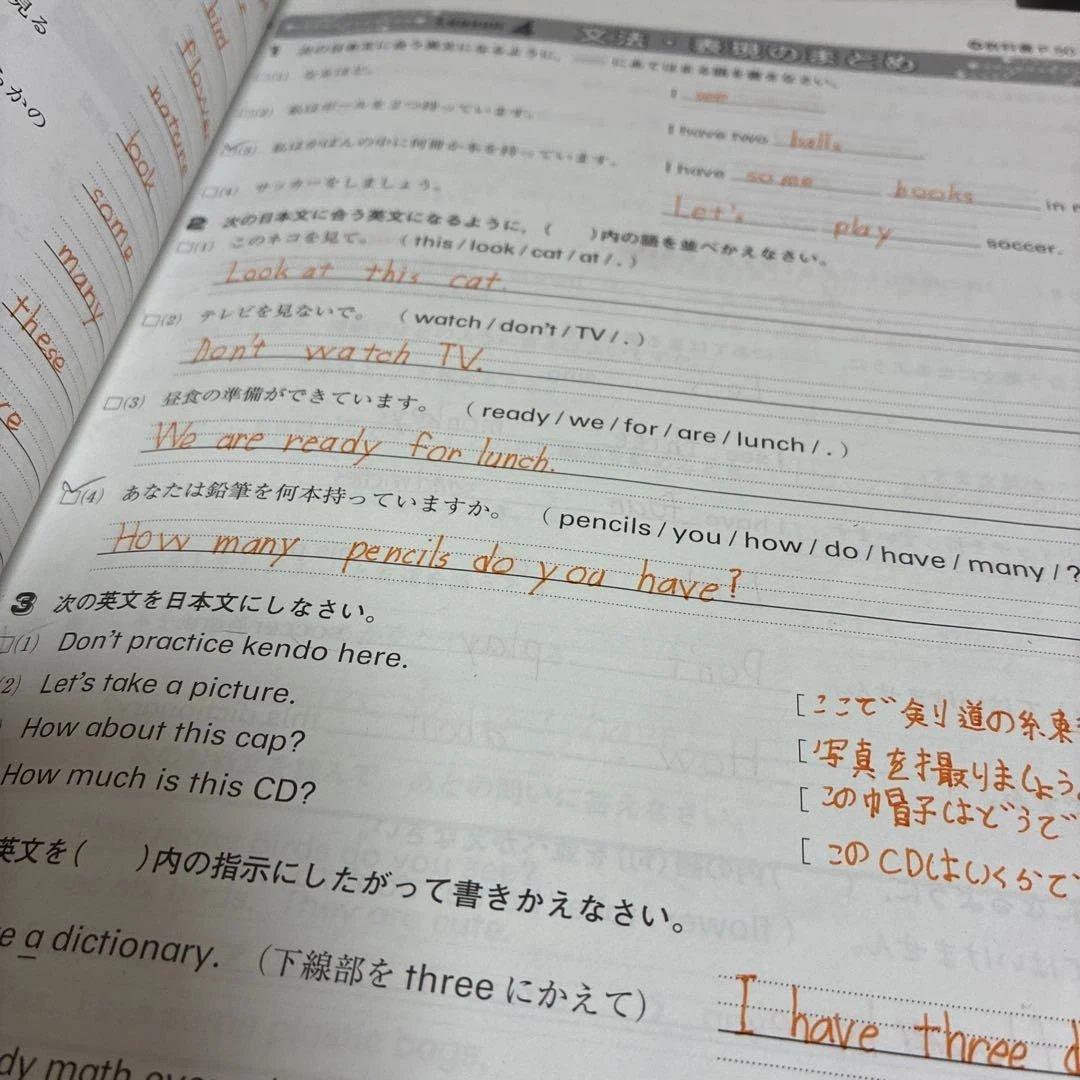 見る
らかの
bird
flower
nature
look
some
many
these
re
Lesson 4 文法・表現のまとめ
教科書 P.50
1 次の日本文に合う英文になるように、 にあてはまる語を書きなさい。
(1) なるほど。 I see
(2) 私はボールを2つ持っています。 I have two balls
(3) 私はかばんの中に何冊か本を持っています。 I have some books in
(4) サッカーをしましょう。 Let's play soccer.
2 次の日本文に合う英文になるように、( )内の語を並べかえなさい。
(1) このネコを見て。 (this / look / cat / at / .)
Look at this cat.
(2) テレビを見ないで。 (watch / don't / TV / .)
Don't watch TV.
(3) 昼食の準備ができています。 (ready / we / for / are / lunch / .)
We are ready for lunch.
(4) あなたは鉛筆を何本持っていますか。 (pencils / you / how / do / have / many / ?
How many pencils do you have?
3 次の英文を日本文にしなさい。
(1) Don't practice kendo here. [ここで剣道の練
(2) Let's take a picture. [写真を撮りましょう。
How about this cap? [この帽子はどうで
How much is this CD? [このCDはいくらで
英文を( )内の指示にしたがって書きかえなさい。
e a dictionary. (下線部を three にかえて)
I have three d
dy math